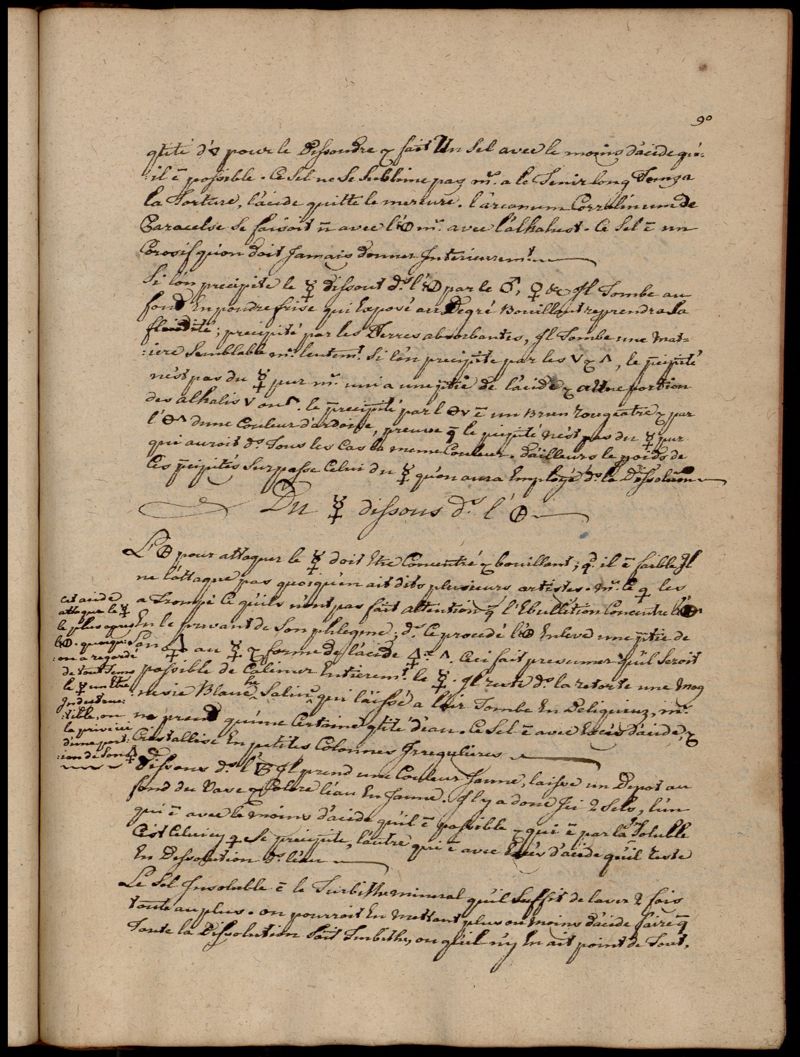 90
qtité d'▽ pour le Dissoudre & fait Un Sel avec le moins d'acide qu'-
:il ē possible. Ce Sel ne se Sublime pas m.s a le Tenir long Tems a
la Torture, l'acide quitte le mercure. l'arcanum Corralinum de
Paracelse se faisoit avec l' m.s avec l'alkahest. Ce Sel ē un
Corosif qu'on doit Jamais donner Interieurem.t
Si l'on precipite le ☿ dissout d.s l' par le ♂, ♀ &c Il Tombe au
fond En poudre Grise qui Exposé au Degré Bouillant reprendra la
fluidité; precipité par les Terres absorbantes, Il Tombe une mat-
:iere Semblable m.s lentem.t Si l'on precipite par les , le p̄cipité
n'est pas du ☿ pur m.s uni a une p̄tie de l'acide & a Une portion
des alkalis ou . le p̄recipité par l' ē un Brun rougeâtre & par
l' d'une Couleur d'ardoise, preuve q̄ le p̄cipité n'est pas du ☿ pur
qui auroit d.s Tous les Cas la meme Couleur. D'ailleurs le poids de
Ces p̄cipités Surpasse Celui du ☿ qu'on aura Employé d.s la Dissolution
Du ☿ dissous d.s l'
L' pour attaquer le ☿ doit Etre Concentré & bouillant; il ē faible Il
ne l'attaque pas quoiqu'en ait dits plusieurs artistes. m.s Ce q̄ les
a Trompé Ce qu'ils n'ont pas fait attention q̄ l'Ebullition Concentre l'
En le privant de Son phlegme; d.s Ce procedé l' Enleve une p̄tie de
Son au ☿ & forme de l'acide . Ceci fait presumer qu'il Seroit
possible de Calciner Entierem.t le ☿. Il reste d.s la retorte une mag
nesie Blanche Saline qui laissé a l'air Tombe En Deliquium, m.s
ne prend qu'une Certaine qtité d'eau. Ce Sel ē avec Excés d'acide, &
Cristallise En petites Colonnes Irregulieres
Dissous d.s l' Il prend une Couleur Jaune, laisse un Depot au
fond du Vase & Colore l'eau En Jaune. Il y a donc Ici 2 Sels, l'un
qui ē avec le moins d'acide qu'il ē possible & qui ē par la
C'est Celui cy q̄ Se precipite, l'autre qui ē avec Excés d'acide qu'il reste
En Dissolution d.s l'eau
Le Sel Insoluble ē le Turbith mineral qu'il Suffit de laver 2 fois
toute au plus. on pourroit En mettant plus ou moins d'acide faire q̄
Toute la Dissolution Soit Turbith, ou qu'il n'y En ait point de Tout.
cet acide
attaque le ☿
le plus aprés
l'. quoiqu'
:on a regardé
de tout Tems
le ☿ un Etre
Indestruc:
:tible, on
le prive ici
d'une port:
:ion de Son